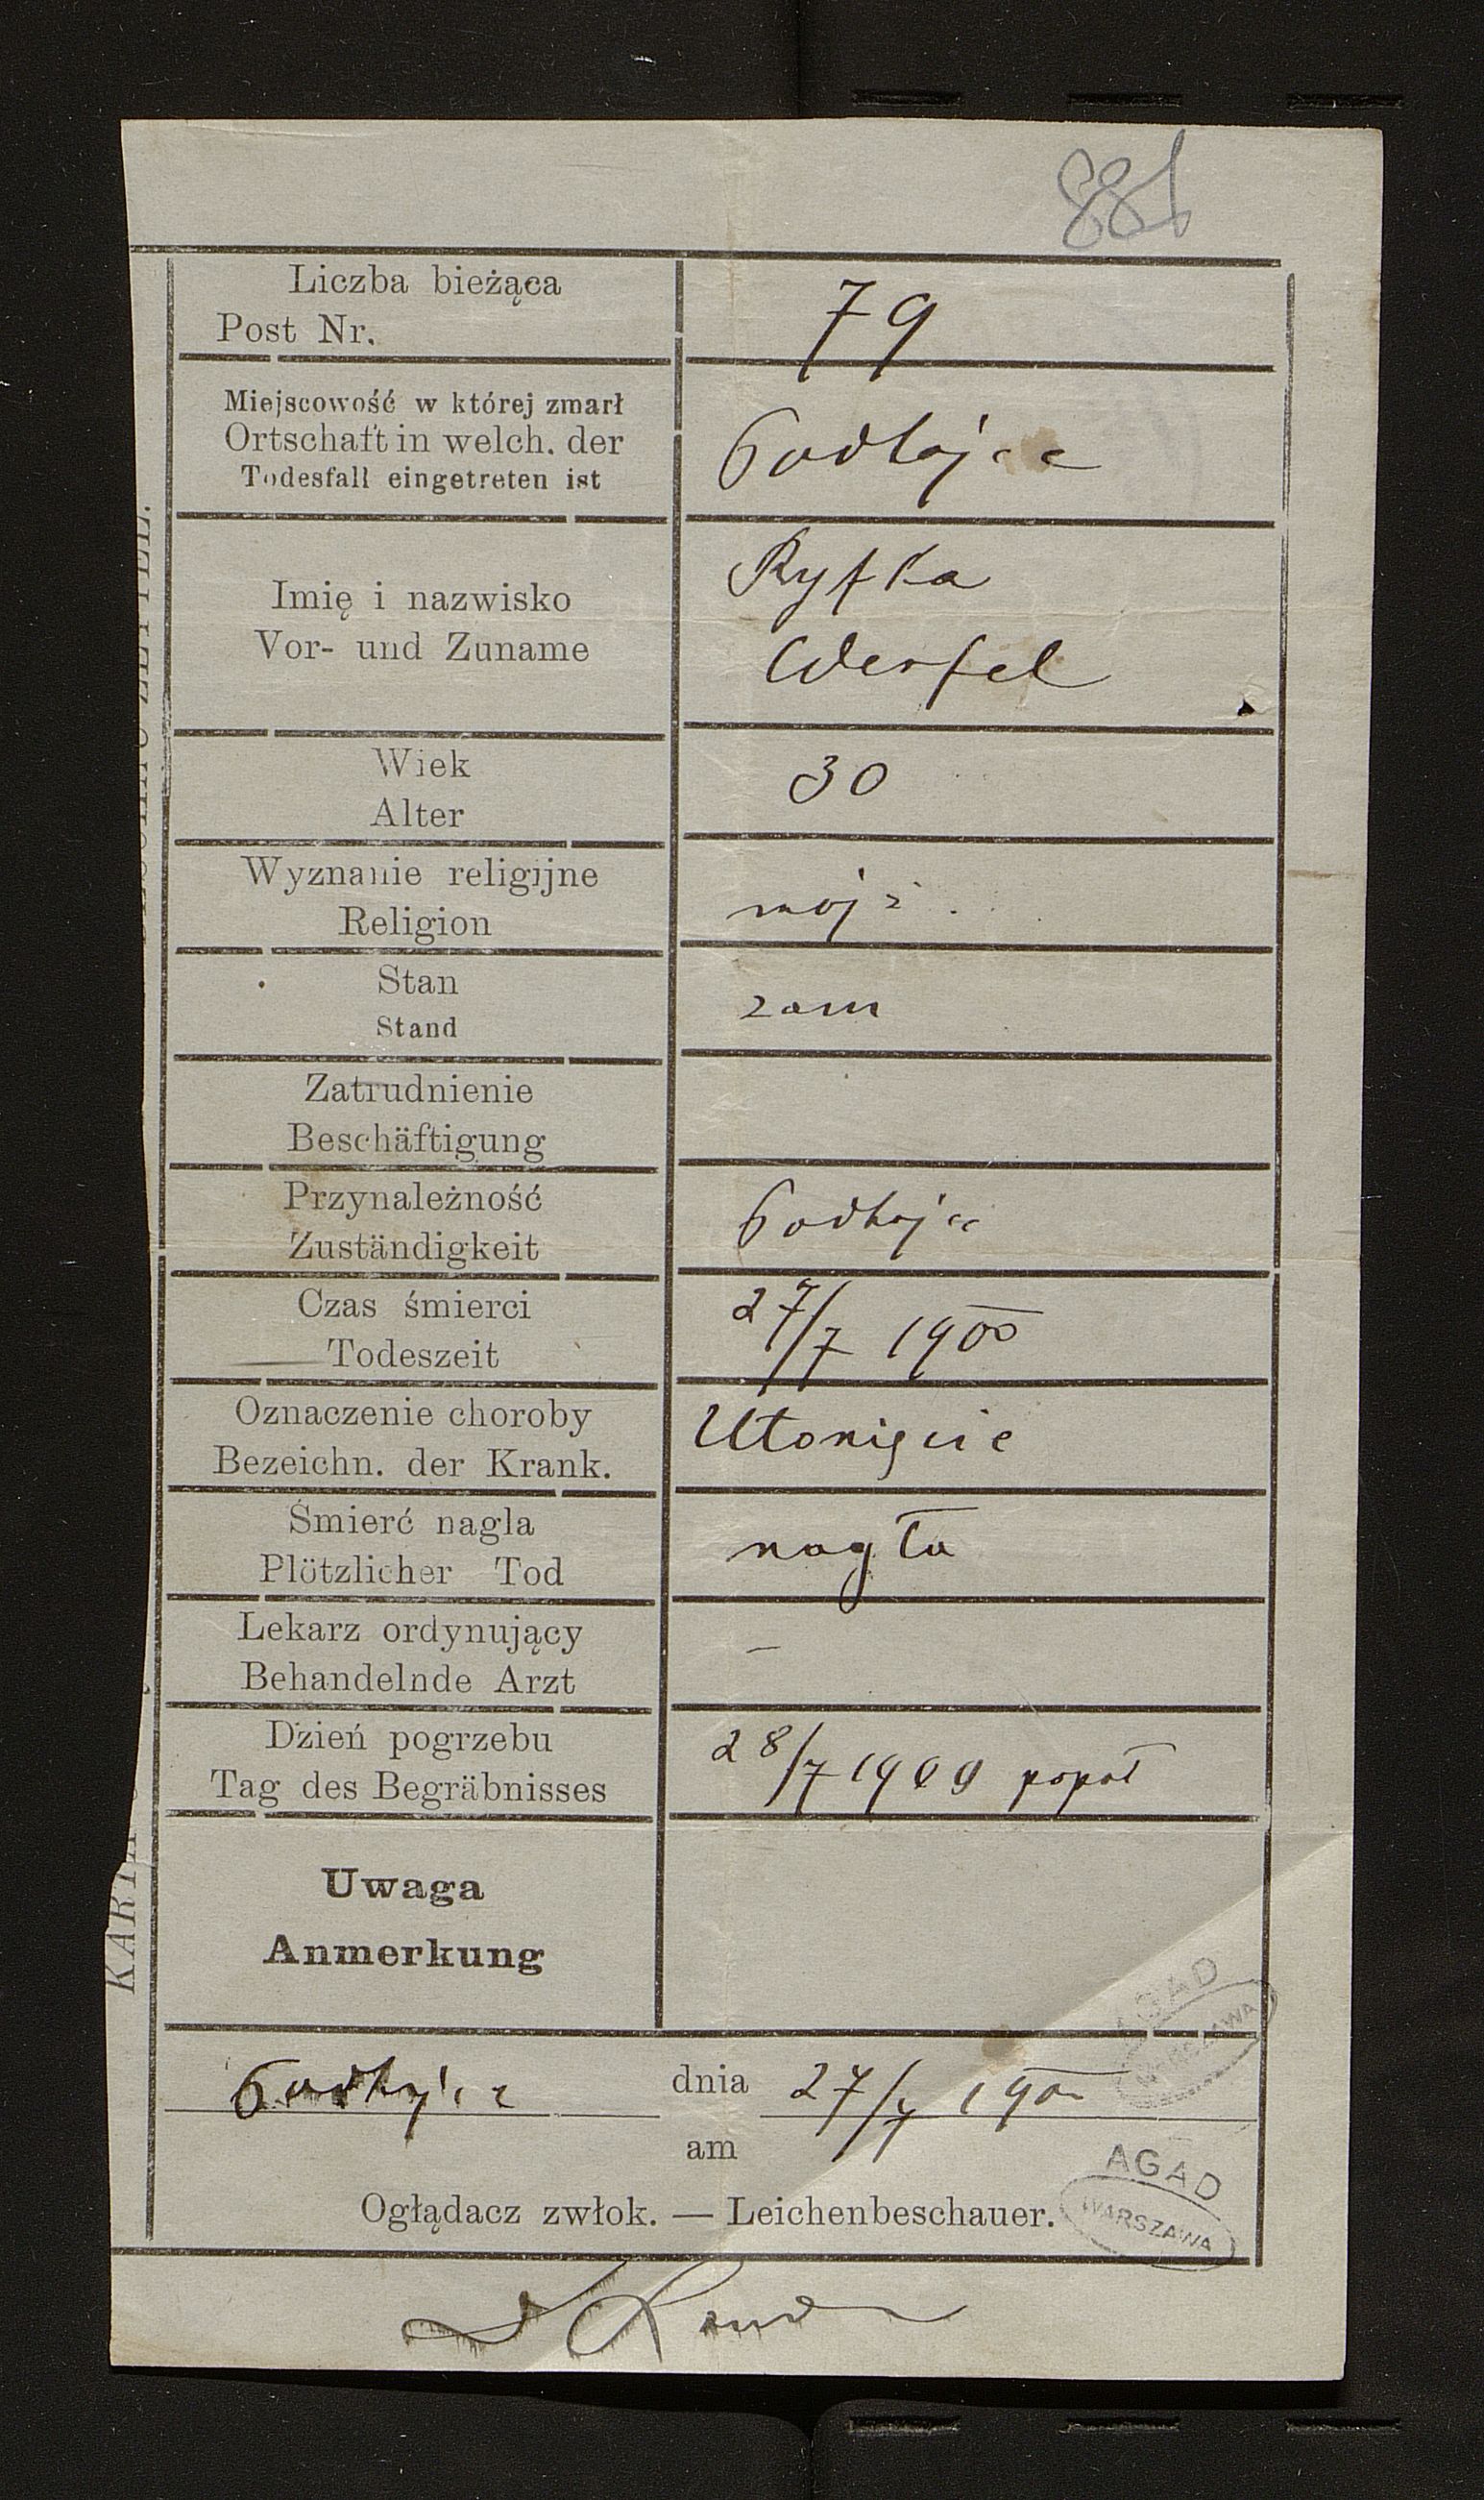 881
Liczba bieżąca
Post Nr.
79
Miejscowość w której zmarł
Ortschaft in welch. der
Todesfall eingetreten ist
Podhajce
Imię i nazwisko
Vor- und Zuname
Ryfka
Werfel
Wiek
Alter
30
Wyznanie religijne
Religion
mojż.
Stan
Stand
zam
Zatrudnienie
Beschäftigung
Przynależność
Zuständigkeit
Podhajce
Czas śmierci
Todeszeit
27/7 1900
Oznaczenie choroby
Bezeichn. der Krank.
Utonięcie
Śmierć nagla
Plötzlicher Tod
nagła
Lekarz ordynujący
Behandelnde Arzt
–
Dzień pogrzebu
Tag des Begräbnisses
28/7 1900 popoł
Uwaga
Anmerkung
Podhajce dnia 27/7 190
am
Oglądacz zwłok. — Leichenbeschauer.
AGAD
WARSZAWA
AGAD
WARSZAWA